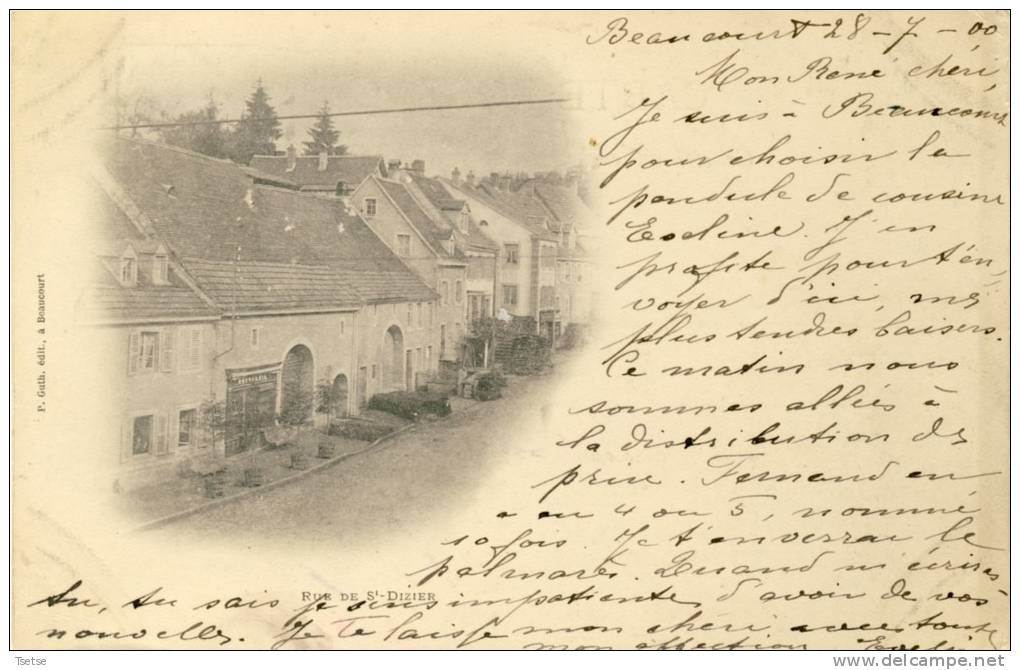 Beaucourt 28-7-00
Mon René chéri,
Je suis à Beaucourt
pour choisir la
pendule de cousine
Eveline. J'en
profite pour t'en,
voyer d'ici, mes
plus tendres baisers.
Ce matin nous
sommes allées à
la distribution des
prix. Fernand en
a eu 4 ou 5, nommé
10 fois. Je t'enverrai le
palmarès. Quand m'écriras
tu, tu sais je suis impatiente d'avoir de vos
nouvelles. Je te laisse mon chéri avec toute
mon affection
RUE DE St-DIZIER
P. Guth. édit., à Beaucourt
Tsetse
http://www.delcampe.net